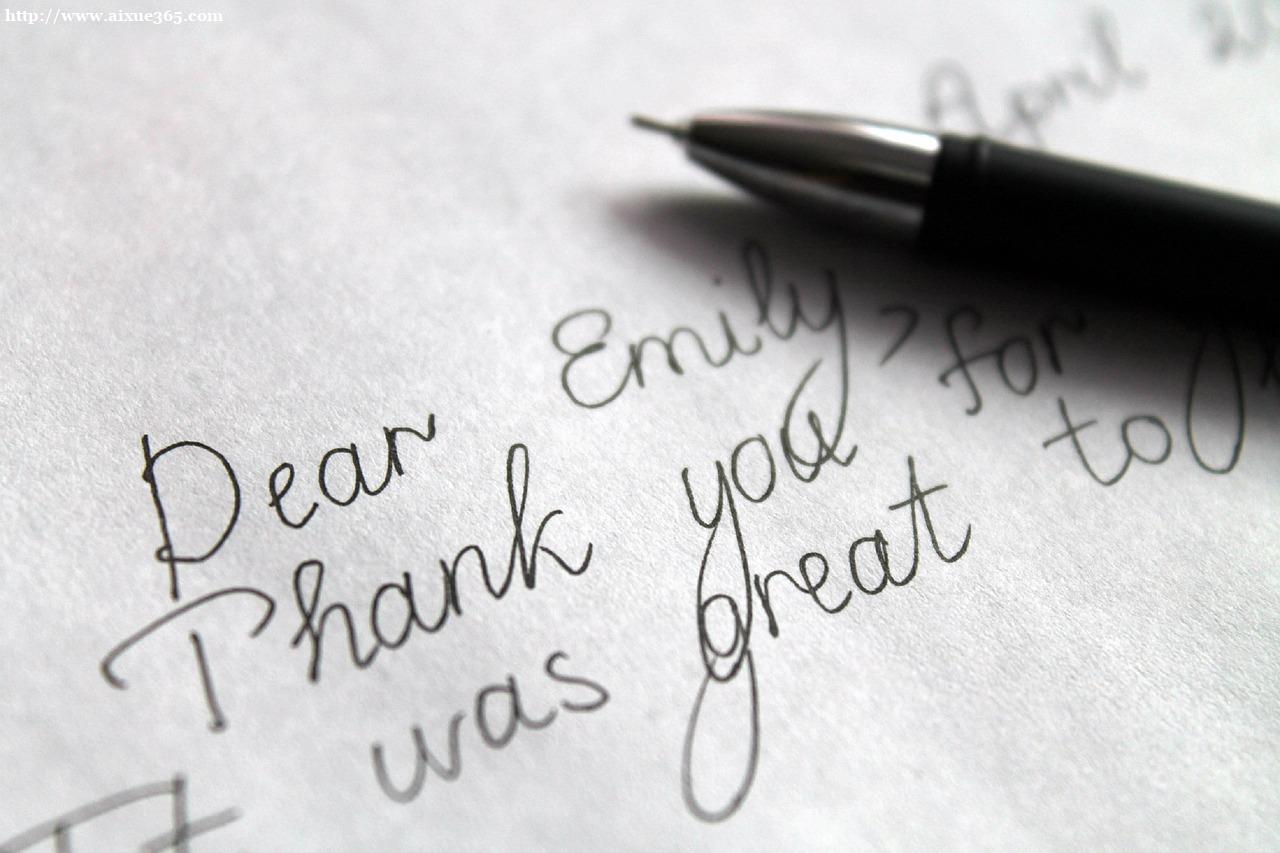 http://www.aixue365.com
April
Dear Emily,
Thank you for
It was great to